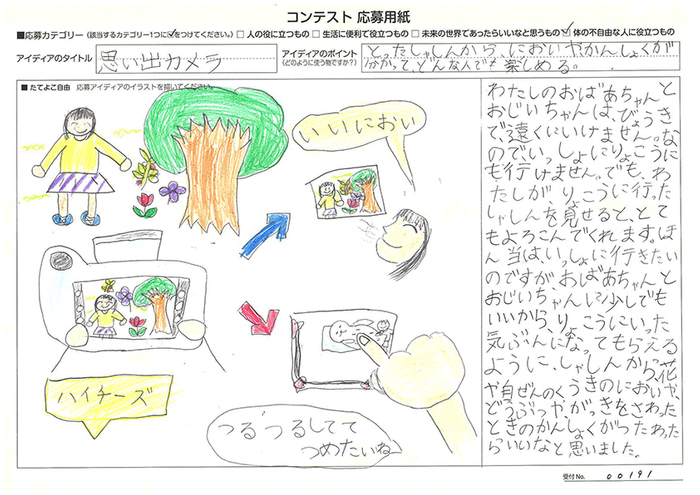 コンテスト 応募用紙
■応募カテゴリー（該当するカテゴリー1つに✓をつけてください。） □ 人の役に立つもの □ 生活に便利で役立つもの □ 未来の世界であったらいいなと思うもの ☑ 体の不自由な人に役立つもの
アイディアのタイトル
思い出カメラ
アイディアのポイント
（どのように使う物ですか？）
とったしゃしんから、においやかんしょくが
分かって、どんな人でも楽しめる。
■ たてよこ自由 応募アイディアのイラストを描いてください。
いいにおい
ハイチーズ
つるつるしてて
つめたいね
わたしのおばあちゃんと
おじいちゃんは、びょうき
で、遠くにいけません。な
のでいっしょにりょこうに
も行けません。でも、わ
たしが、りょこうに行った
しゃしんを見せると、とて
もよろこんでくれます。ほ
ん当はいっしょに行きたい
のですが、おばあちゃんと
おじいちゃんに少しでも
いいから、りょこうにいった
気ぶんになってもらえる
ように、しゃしんから、花
や自ぜんのくうきのにおいや、
どうぶつやがっきをさわった
ときのかんしょくがつたわった
らいいなと思いました。
受付No. 00191